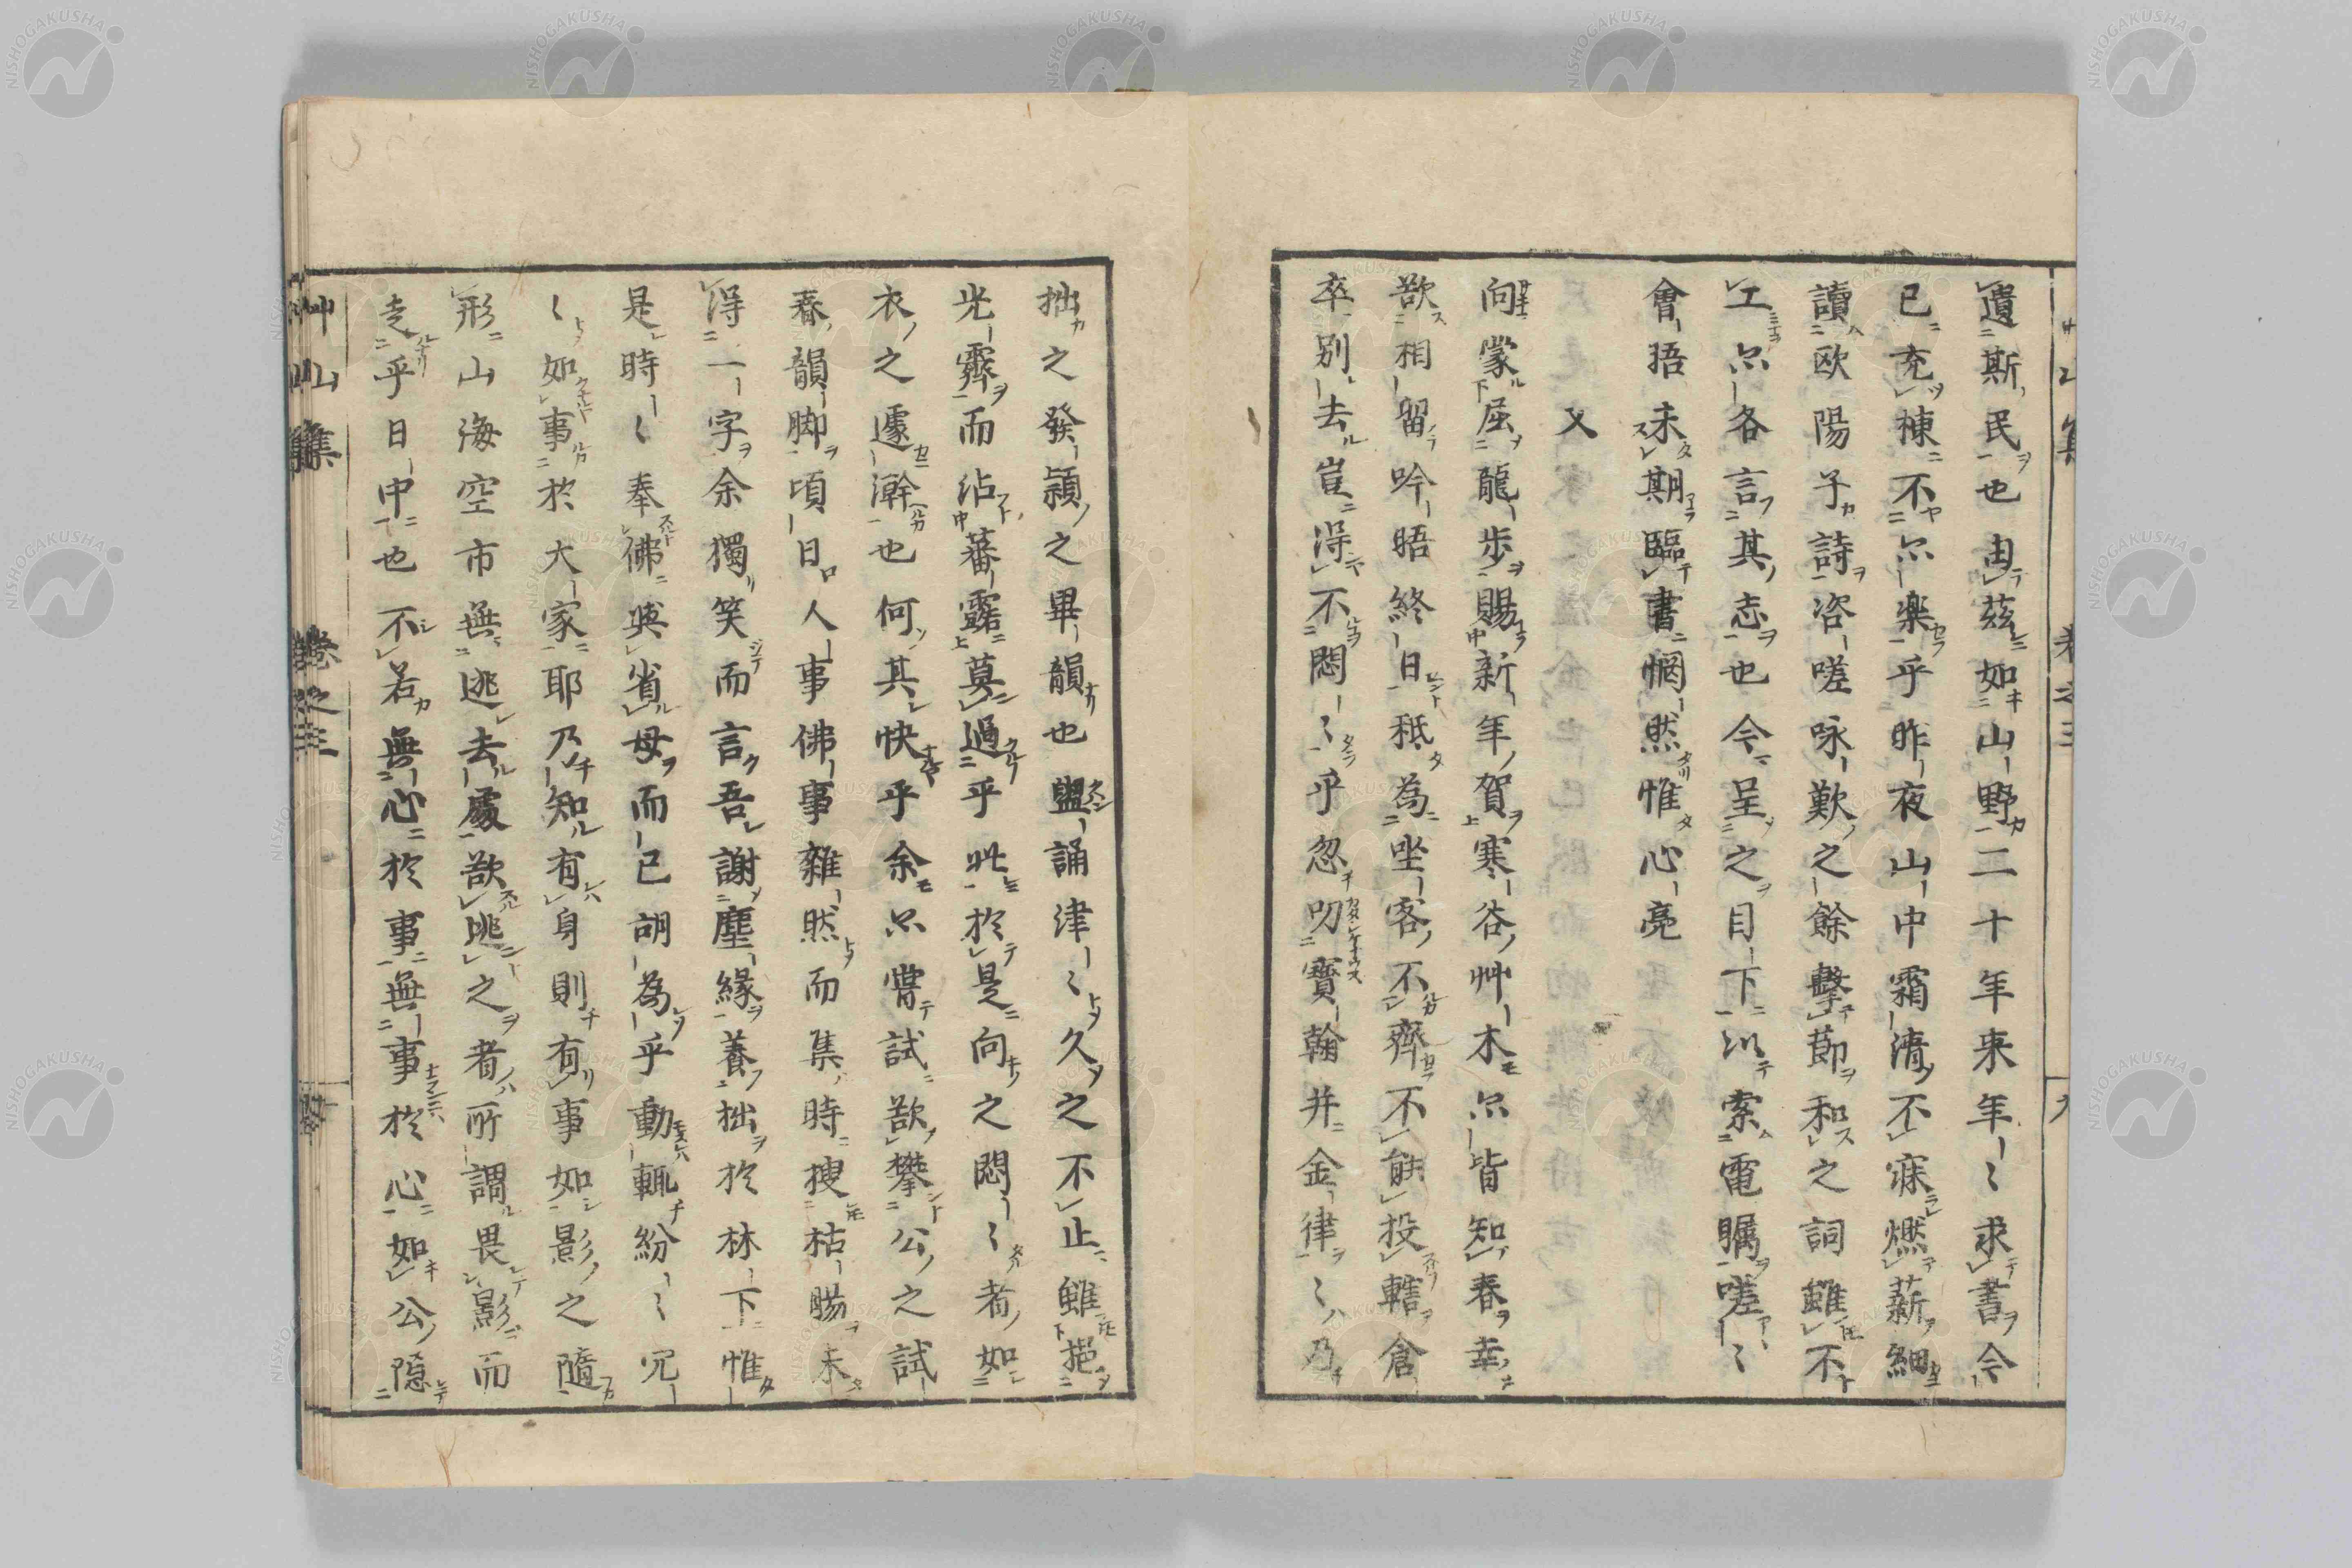 遺斯民也由茲如山野二十年来年〻求書今
已充棟不尓樂乎昨夜山中霜淸不寐燃薪細
讀欧陽子詩咨嗟咏歎之餘擊節和之詞雖不
工尓各言其志也今呈之目下以索電矚嗟〻
會捂未期臨書惘然惟心亮
又
向蒙屈龍步賜新年賀寒谷艸木尓皆知春幸
欲相留吟晤終日秪為坐客不齊不能投轄倉
卒別去豈得不悶〻乎忽叨寶翰并金律〻乃
拙之發潁之畢韻也盥誦津〻久之不止雖挹
光霽而沾蕃露莫過乎此於是向之悶〻者如
衣之遽澣也何其快乎余尓嘗試欲攀公之試
春韻脚頃日人事佛事雜然而集時搜枯腸未
得一字余獨笑而言吾謝塵緣養拙於林下惟
是時〻奉佛與省母而已胡為乎動輒紛〻冗
〻如事於大家耶乃知有身則有事如影之隨
形山海空市無逃去處欲逃之者所謂畏影而
走乎日中也不若無心於事無事於心如公隠
艸山集 卷之三